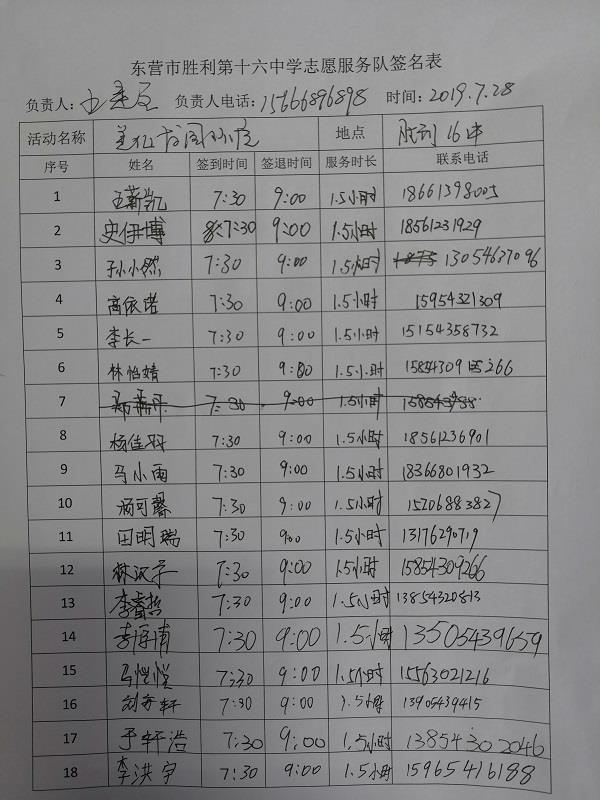 东营市胜利第十六中学志愿服务队签名表
负责人: 负责人电话: 15666896898 时间: 2019.7.28
活动名称 地点 胜利16中
序号 姓名 签到时间 签退时间 服务时长 联系电话
1 王薪凯 7:30 9:00 1.5小时 18661398005
2 史伊博 7:30 9:00 1.5小时 18561231929
3 孙小然 7:30 9:00 1.5小时 13054637096
4 高依诺 7:30 9:00 1.5小时 15954321309
5 李长一 7:30 9:00 1.5小时 15154358732
6 林怡婧 7:30 9:00 1.5小时
7 7:30 9:00 1.5小时
8 杨佳羽 7:30 9:00 1.5小时 18561236901
9 马小雨 7:30 9:00 1.5小时 18366801932
10 汤可馨 7:30 9:00 1.5小时 15706883827
11 田明瑞 7:30 9:00 1.5小时 13176290719
12 林汉宇 7:30 9:00 1.5小时 15854309266
13 李睿哲 7:30 9:00 1.5小时 13854320813
14 7:30 9:00 1.5小时 13505439659
15 马恺悦 7:30 9:00 1.5小时 15563021216
16 7:30 9:00 1.5小时 13905439415
17 于轩浩 7:30 9:00 1.5小时 13854302046
18 李洪宇 7:30 9:00 1.5小时 15965416188